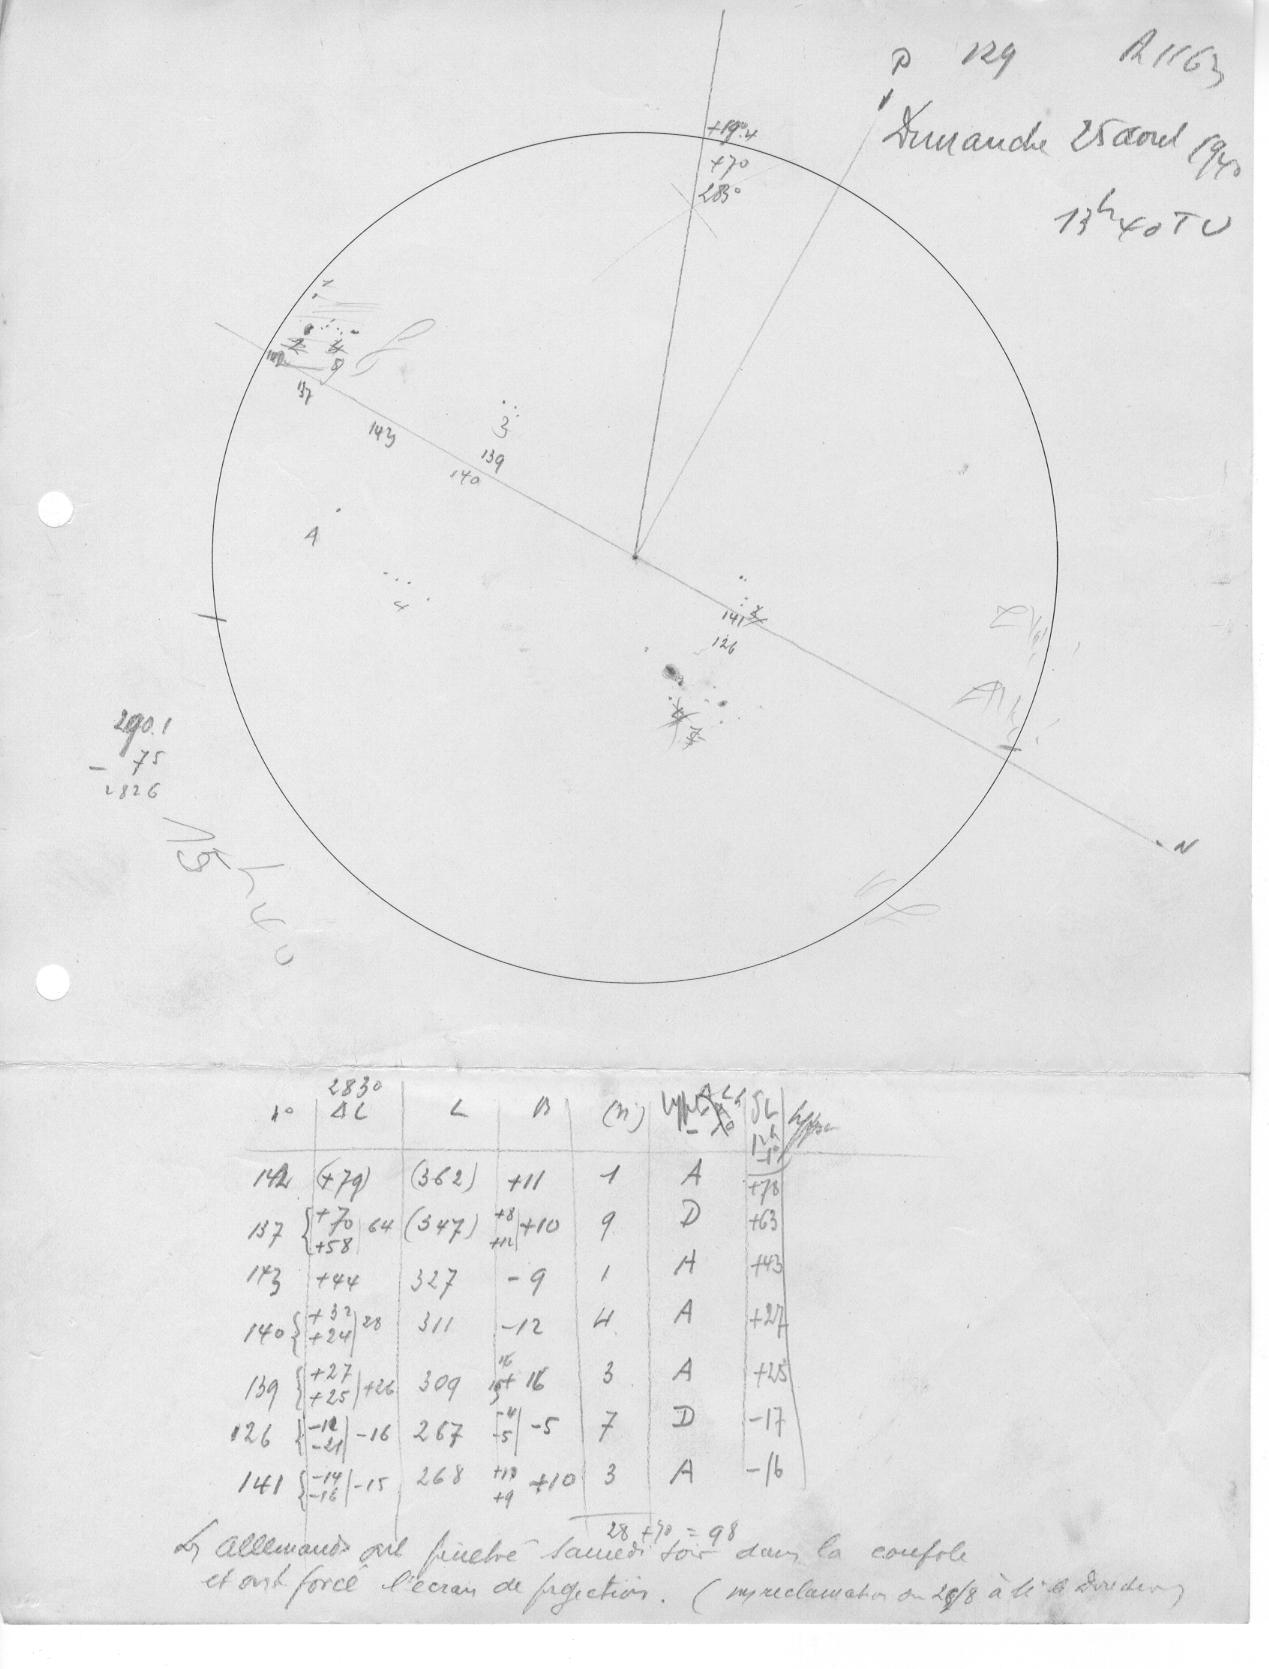 P 129
Dimanche 25 aout 1940
13h40 TU
+19°.4
+70
283°
2 4
137
143
3
139
140
A
4
141
126
N
290.1
- 75
2826
15h40
2830
n° ΔL L B (n)
142 (+79) (362) +11 1 A +78
137 {+70 +58| 64 (347) +8 +12| +10 9 D +63
143 +44 327 -9 1 A +43
140 {+32 +24| 28 311 -12 4 A +27
139 {+27 +25| +26 309 +16 3 A +25
126 {-12 -21| -16 267 -4 -5| -5 7 D -17
141 {-14 -16| -15 268 +10 +9 +10 3 A -16
28 +70 = 98
Les Allemands ont pénétré Samedi soir dans la coupole
et ont forcé l'écran de projection. ( reclamation 26/8 à